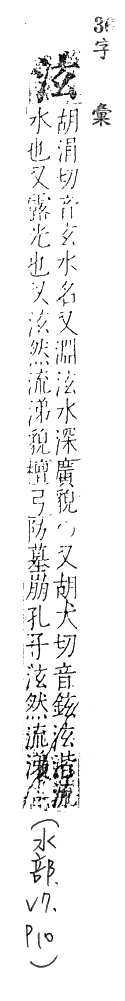 36字
彙
泫
胡涓切音玄水名又淵泫水深廣貌又胡犬切音鉉泫濳流
水也又露光也又泫然流涕貌檀弓防墓崩孔子泫然流涕
(水部. V7. P10)